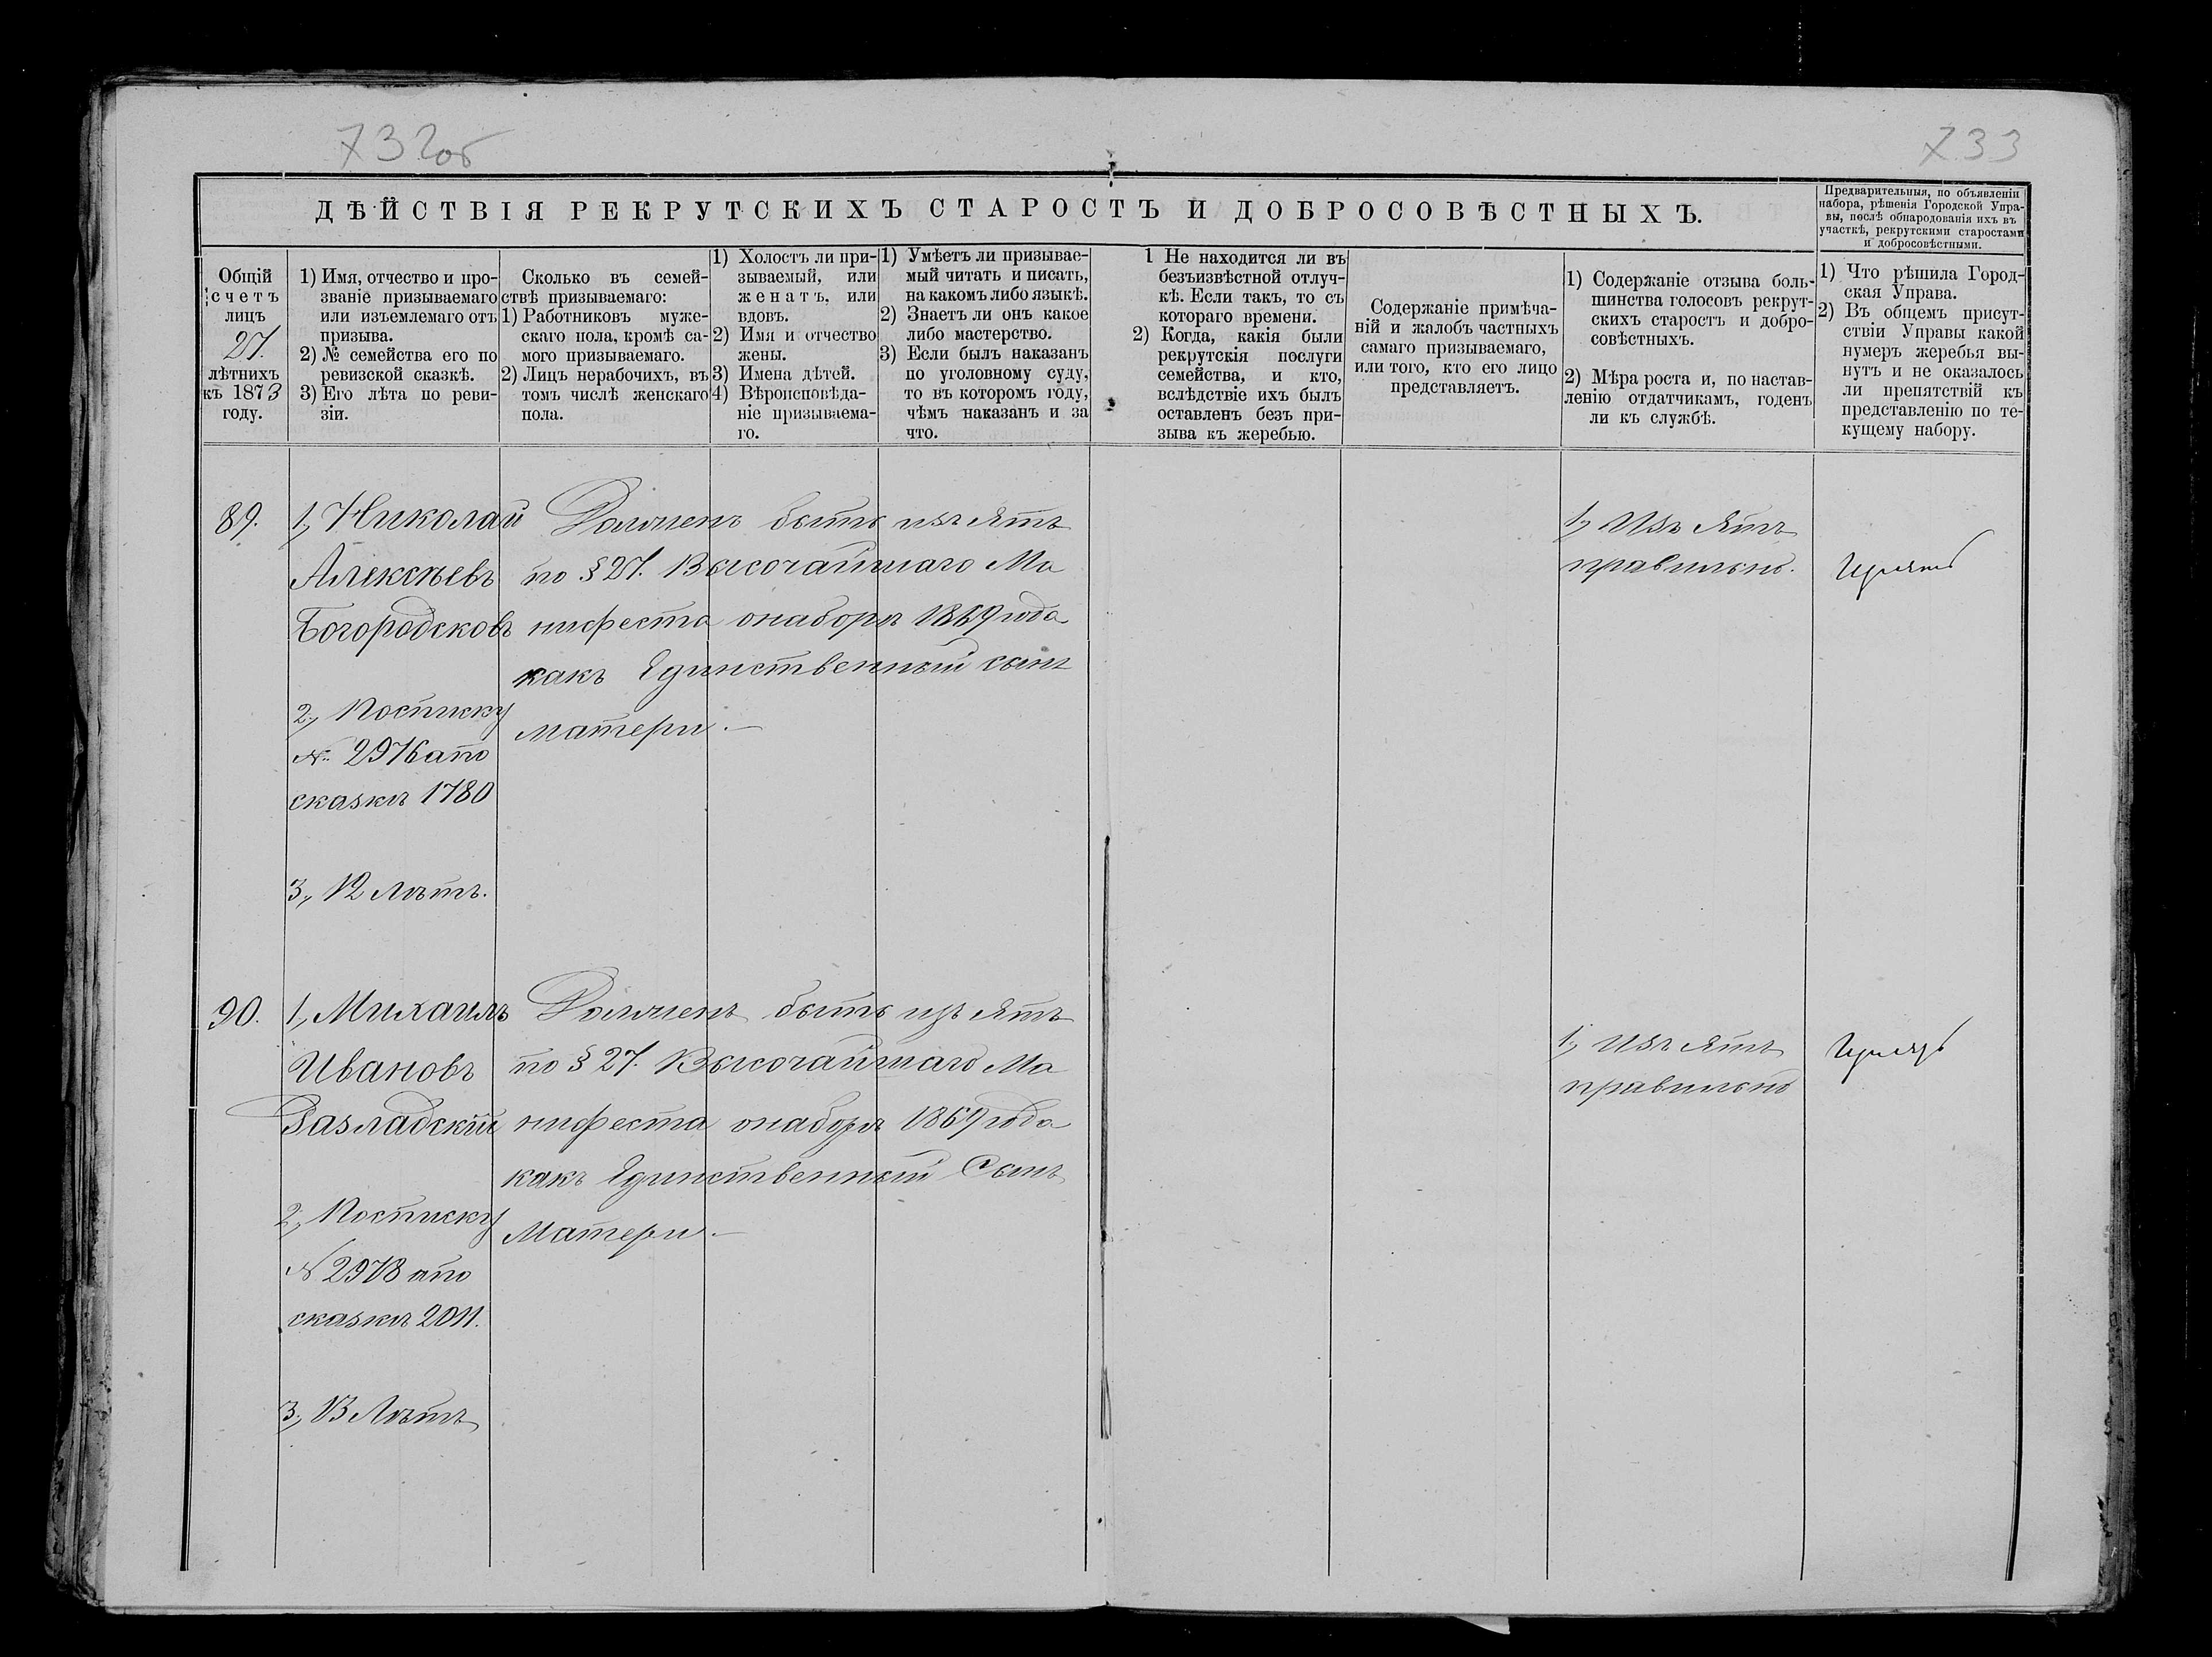 732об
733
ДѢЙСТВІЯ РЕКРУТСКИХЪ СТАРОСТЪ И ДОБРОСОВѢСТНЫХЪ.
Предварительныя, по объявленіи
набора, рѣшенія Городской Упра-
вы, послѣ обнародованія ихъ въ
участкѣ, рекрутскими старостами
и добросовѣстными.
Общій
счетъ
лицъ
27.
лѣтнихъ
къ 1873
году.
1) Имя, отчество и про-
званіе призываемаго
или изъемлемаго отъ
призыва.
2) № семейства его по
ревизской сказкѣ.
3) Его лѣта по реви-
зіи.
Сколько въ семей-
ствѣ призываемаго:
1) Работниковъ муже-
скаго пола, кромѣ са-
мого призываемаго.
2) Лицъ нерабочихъ, въ
томъ числѣ женскаго
пола.
1) Холостъ ли при-
зываемый, или
женатъ, или
вдовъ.
2) Имя и отчество
жены.
3) Имена дѣтей.
4) Вѣроисповѣда-
ніе призываема-
го.
1) Умѣетъ ли призывае-
мый читать и писать,
на какомъ либо языкѣ.
2) Знаетъ ли онъ какое
либо мастерство.
3) Если былъ наказанъ
по уголовному суду,
то въ которомъ году,
чѣмъ наказанъ и за
что.
1 Не находится ли въ
безъизвѣстной отлуч-
кѣ. Если такъ, то съ
котораго времени.
2) Когда, какія были
рекрутскія послуги
семейства, и кто,
вслѣдствіе ихъ былъ
оставленъ безъ при-
зыва къ жеребью.
Содержаніе примѣча-
ній и жалобъ частныхъ
самаго призываемаго,
или того, кто его лицо
представляетъ.
1) Содержаніе отзыва боль-
шинства голосовъ рекрут-
скихъ старостъ и добро-
совѣстныхъ.
2) Мѣра роста и, по настав-
ленію отдатчикамъ, годенъ
ли къ службѣ.
1) Что рѣшила Город-
ская Управа.
2) Въ общемъ присут-
ствіи Управы какой
нумеръ жеребья вы-
нутъ и не оказалось
ли препятствій къ
представленію по те-
кущему набору.
89.
1, Николай
Алексѣевъ
Богородсковъ
2, Посписку
№ 2976 апо
сказкѣ 1780
3, 12 Лѣтъ.
Долженъ быть изъятъ
по § 27. Высочайшаго Ма
нифеста онаборѣ 1869 года
какъ Единственный сынъ
матери.—
1, Изъятъ
правильно.
90.
1, Михаилъ
Ивановъ
Разладскій
2, Посписку
№ 2978 апо
сказкѣ 2011.
3, 13 Лѣтъ
Долженъ быть изъятъ
по § 27. Высочайшаго Ма
нифеста онаборѣ 1869 года
какъ Единственный Сынъ
Матери.—
1, Изъятъ
правильно